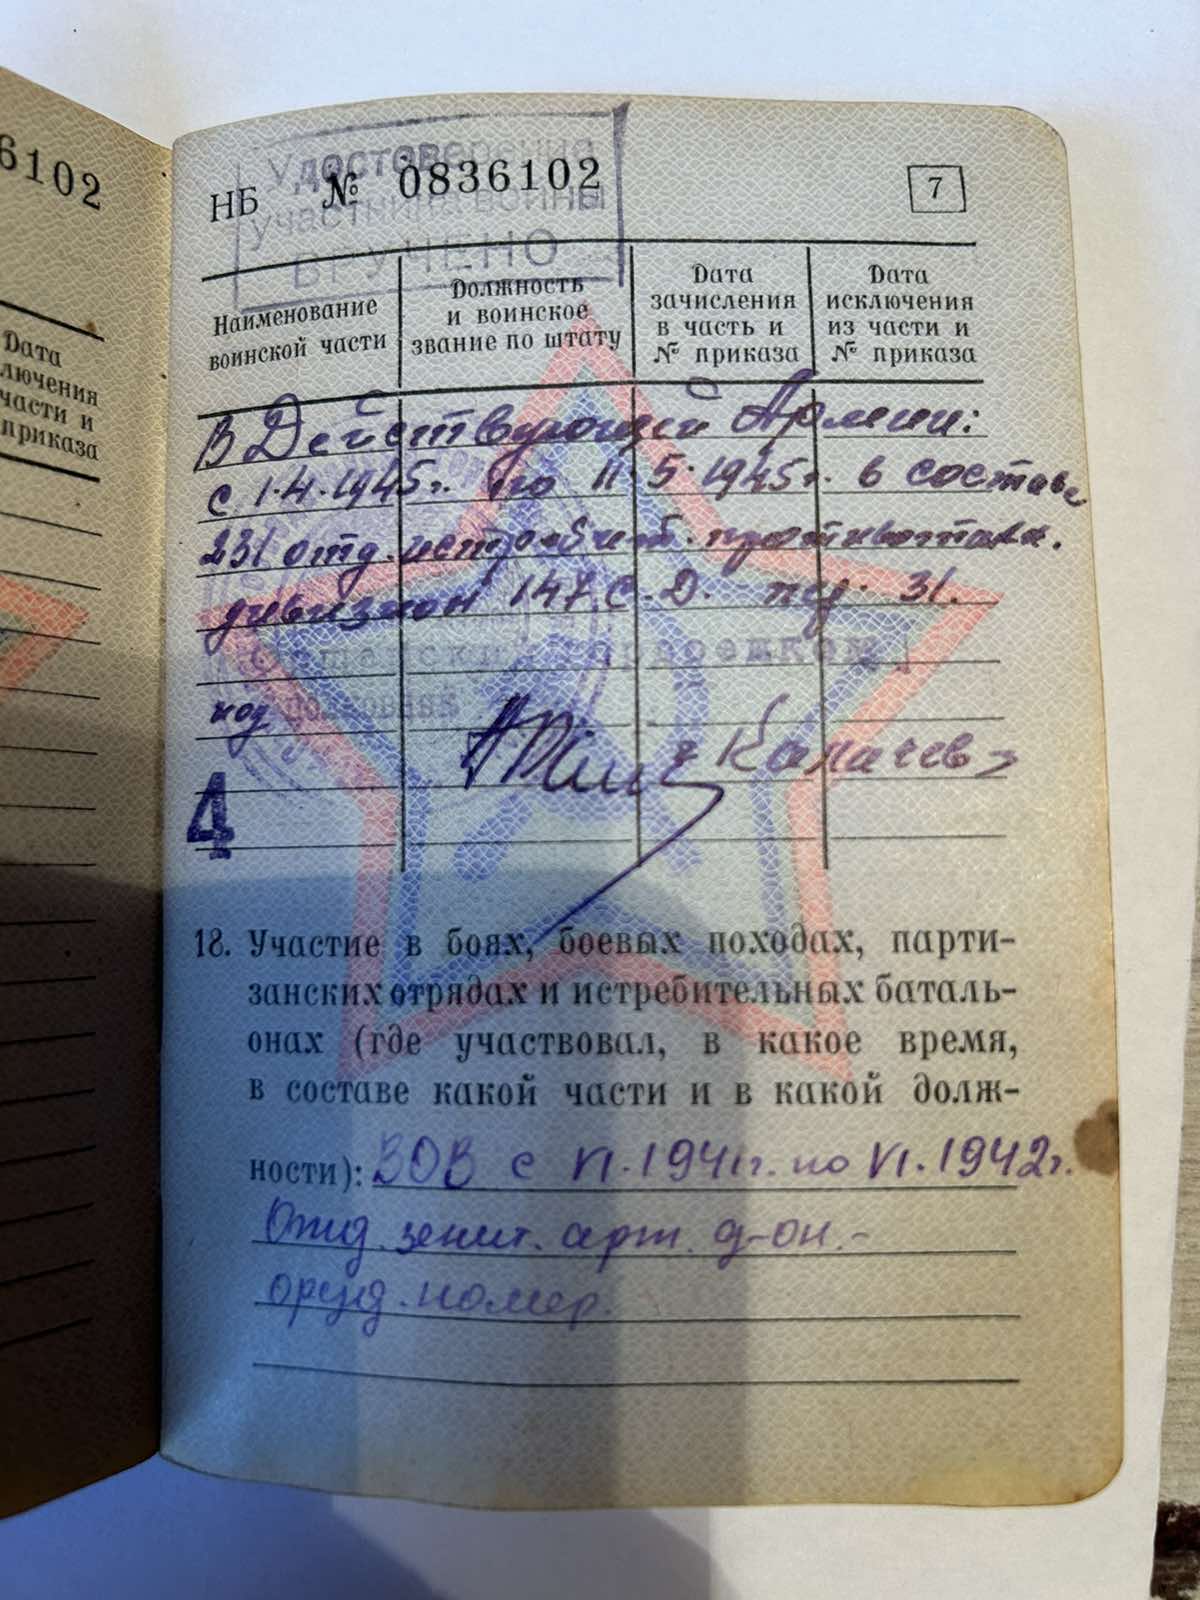 6102
Дата
лючения
части и
приказа
Удостоверение
участника войны
ВРУЧЕНО
НБ № 0836102
7
Наименование воинской части
Должность и воинское звание по штату
Дата зачисления в часть и № приказа
Дата исключения из части и № приказа
В Действующей Армии:
с 1.4.1945г. по 11.5.1945г. в составе
231 отд. истребит. противотанк.
дивизион 147 с.д. пер. 31.
под
« Калачев »
4
18. Участие в боях, боевых походах, парти-
занских отрядах и истребительных баталь-
онах (где участвовал, в какое время,
в составе какой части и в какой долж-
ности): ВОВ с VI.1941г. по VI.1942г.
Отд. зенит. арт. д-он.-
оруд. номер.